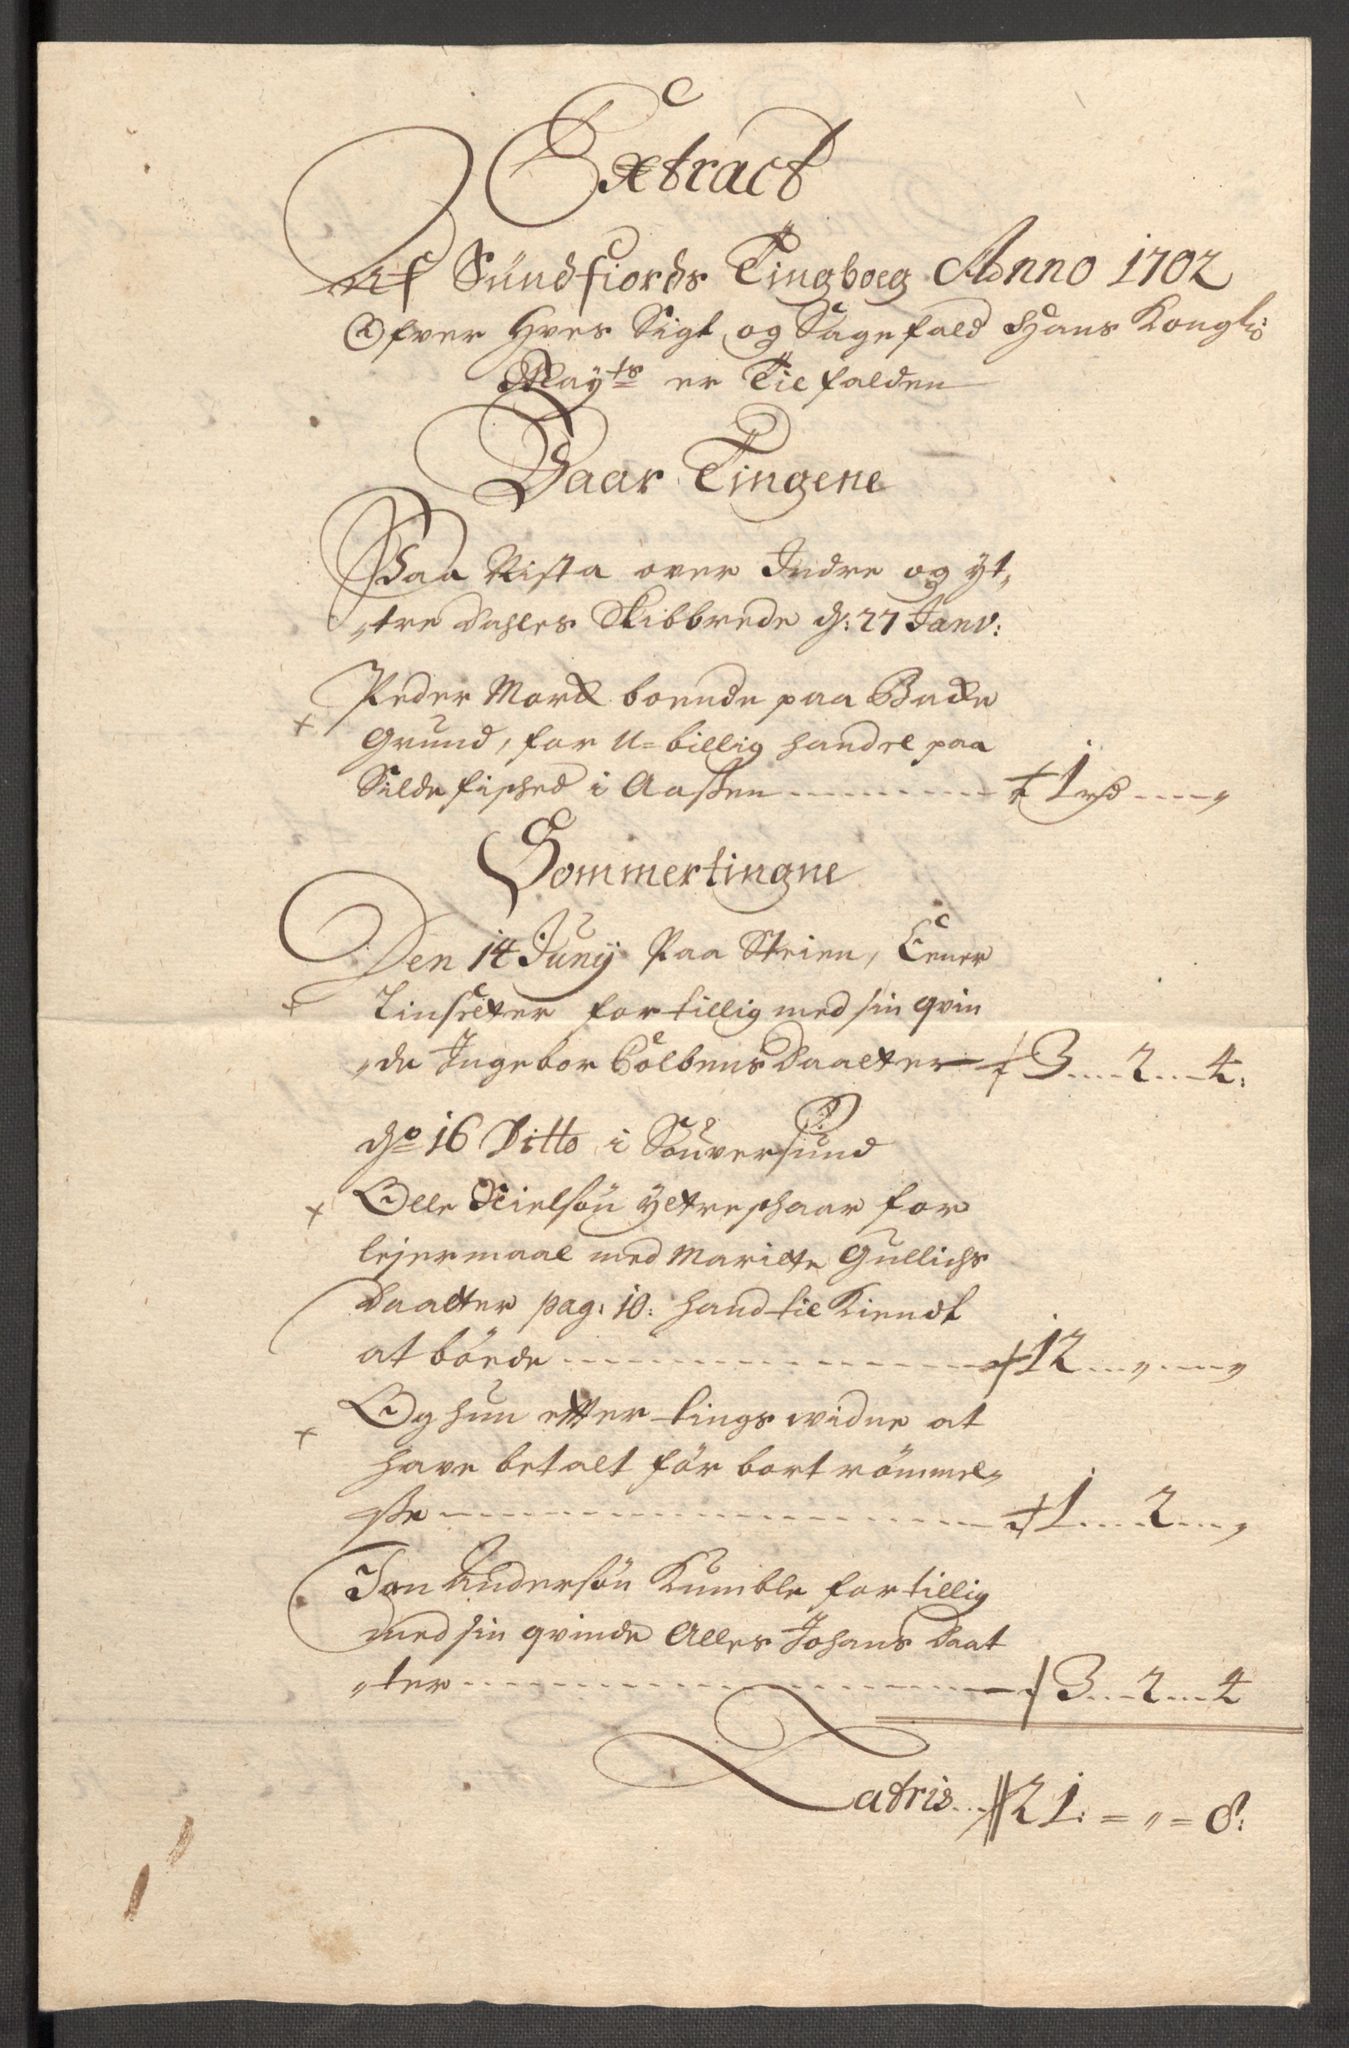 Extract
Af Sundfiords Tingboeg Anno 1702
Ofver Hves Sigt og Sagefald Hans Kongl:
Mayts er Tilfalden
Vaar Tingene
Paa Rista over Indre og yt„
„tre Dahles Skibbrede d: 27 Janv:
Peder Mork boende paa Bakke
Grund, for U=billig handel paa
Silde fisched i Aassen 1 rd „
Sommertingne
Den 14 Junij Paa Steien, Eener
for tillig med sin qvin
„de Ingebor Colbens Daatter 3 2 4:
do 16 Ditto i Souversund
Olle Nielsön ytreschaar for
lejermaal med Maritte Gullichs
Daatter pag: 10: hand til Kiendt
at böede 12 „ „
Og hun efter tings widne at
have betalt för bort römmel„
sse 1 2 „
Jon Andersön Kumble for tillig
med sin qvinde Alles Johans Daat
„ter 3 2 4
Latris 21: = „ = 8: